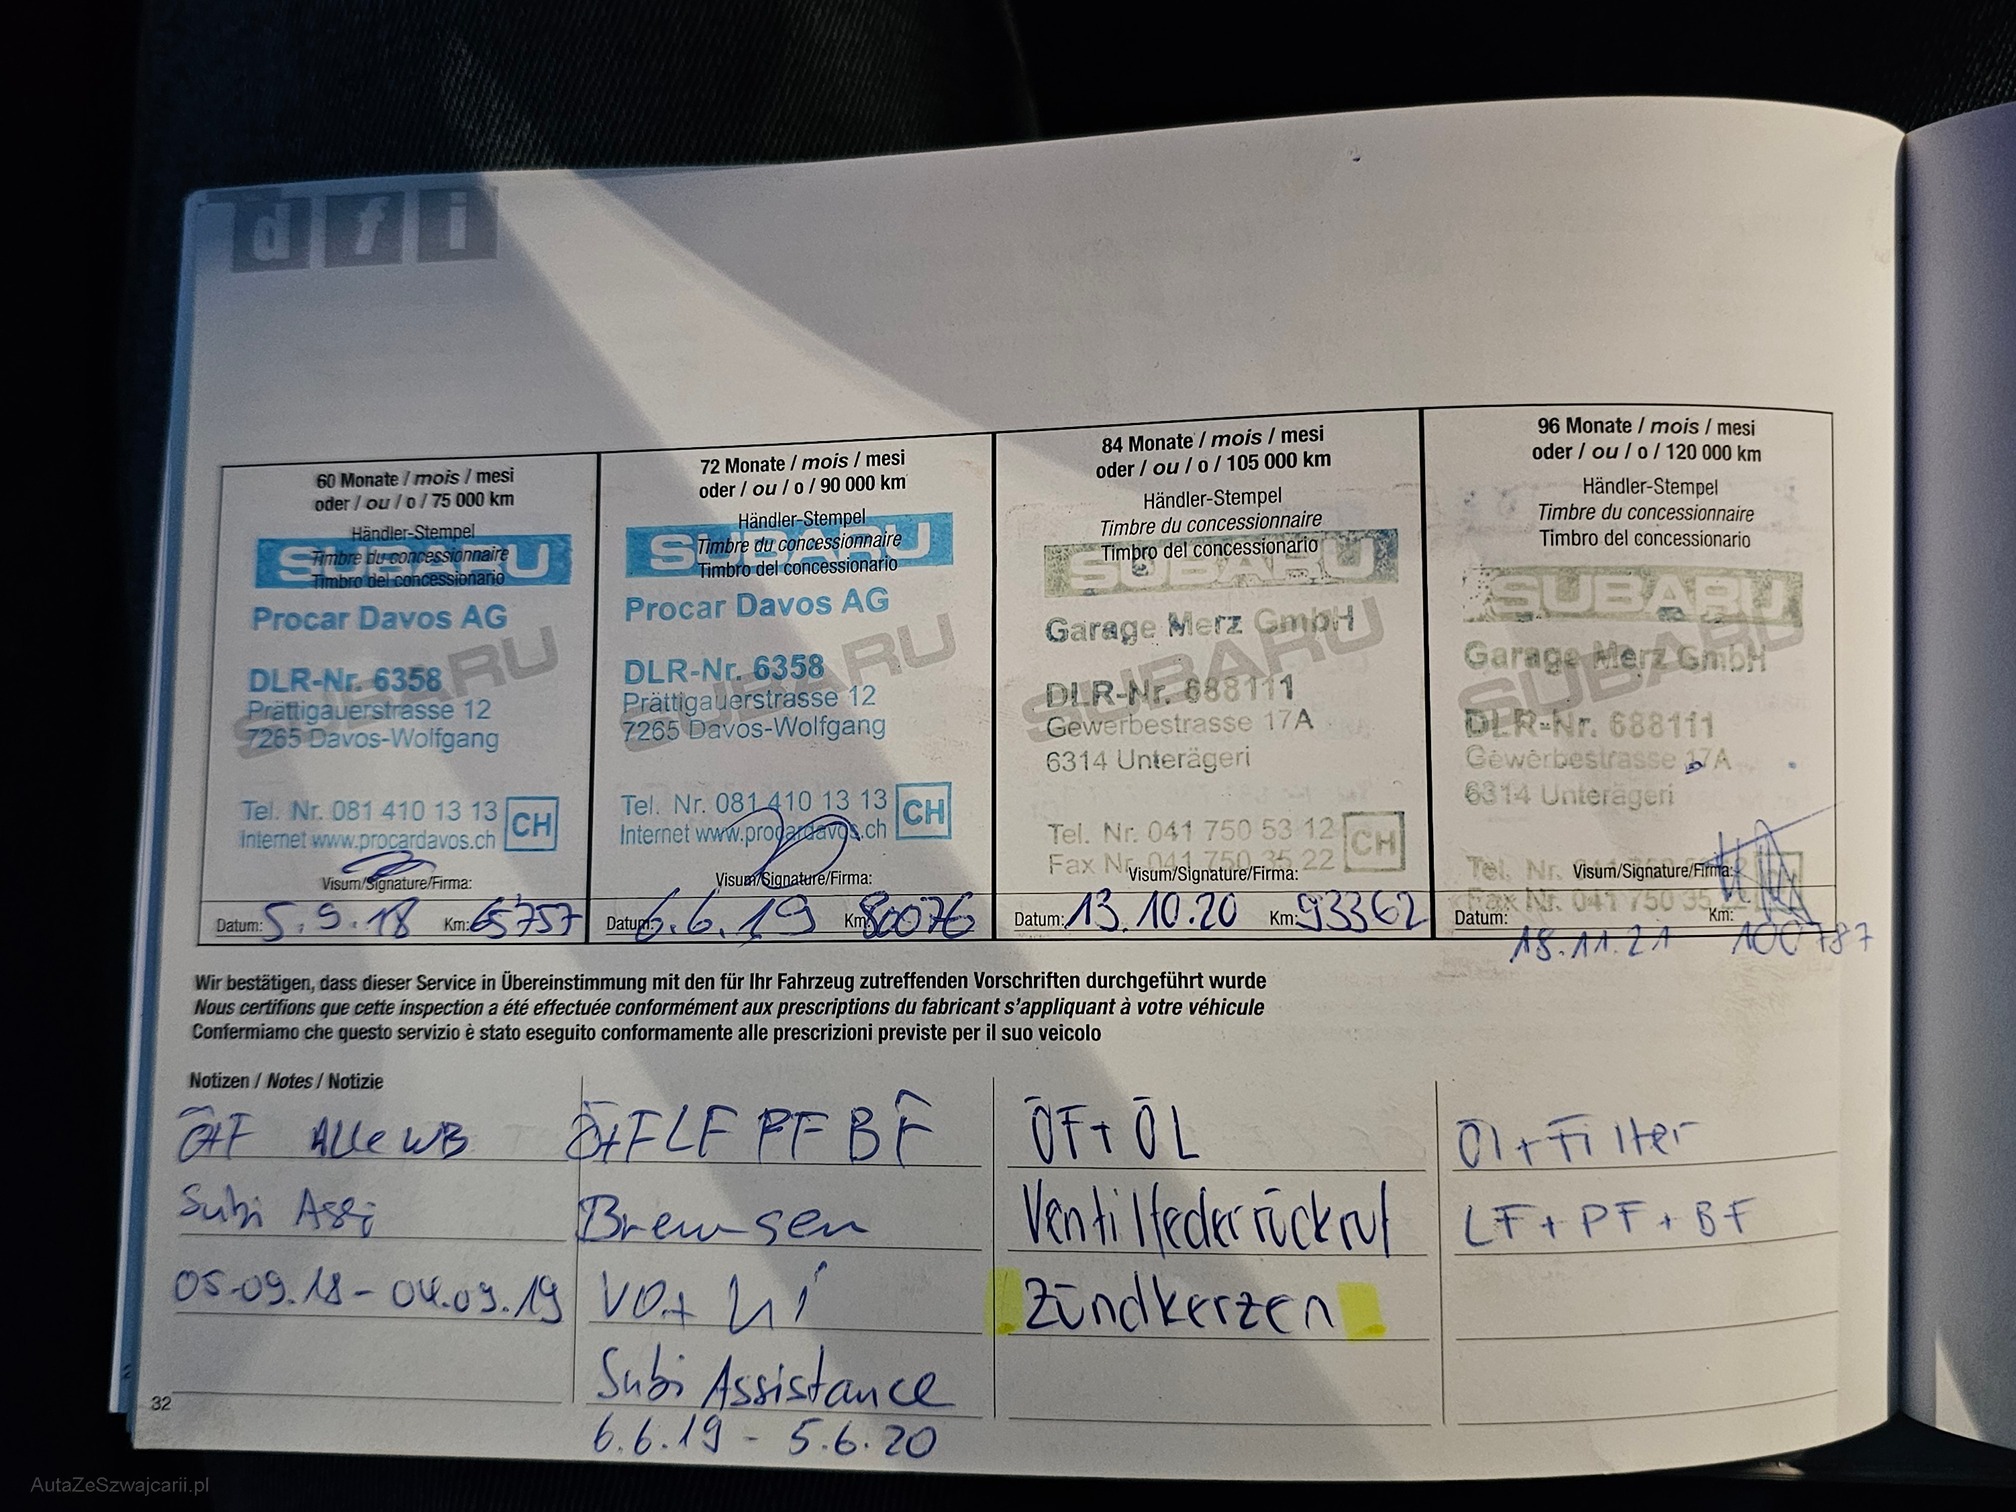 d f i
60 Monate / mois / mesi
oder / ou / o / 75 000 km
Händler-Stempel
Timbre du concessionnaire
Timbro del concessionario
SUBARU
Procar Davos AG
SUBARU
DLR-Nr. 6358
Prättigauerstrasse 12
7265 Davos-Wolfgang
Tel. Nr. 081 410 13 13
Internet www.procardavos.ch
CH
Visum/Signature/Firma:
Datum: 5.9.18 Km: 65757
72 Monate / mois / mesi
oder / ou / o / 90 000 km
Händler-Stempel
Timbre du concessionnaire
Timbro del concessionario
SUBARU
Procar Davos AG
SUBARU
DLR-Nr. 6358
Prättigauerstrasse 12
7265 Davos-Wolfgang
Tel. Nr. 081 410 13 13
Internet www.procardavos.ch
CH
Visum/Signature/Firma:
Datum: 6.6.19 Km: 80076
84 Monate / mois / mesi
oder / ou / o / 105 000 km
Händler-Stempel
Timbre du concessionnaire
Timbro del concessionario
SUBARU
Garage Merz GmbH
SUBARU
DLR-Nr. 688111
Gewerbestrasse 17A
6314 Unterägeri
Tel. Nr. 041 750 53 12
Fax Nr. 041 750 35 22
CH
Visum/Signature/Firma:
Datum: 13.10.20 Km: 93362
96 Monate / mois / mesi
oder / ou / o / 120 000 km
Händler-Stempel
Timbre du concessionnaire
Timbro del concessionario
SUBARU
Garage Merz GmbH
SUBARU
DLR-Nr. 688111
Gewerbestrasse 17A
6314 Unterägeri
Tel. Nr.
Fax Nr. 041 750 35
Visum/Signature/Firma:
Datum: Km:
18.11.21 100787
Wir bestätigen, dass dieser Service in Übereinstimmung mit den für Ihr Fahrzeug zutreffenden Vorschriften durchgeführt wurde
Nous certifions que cette inspection a été effectuée conformément aux prescriptions du fabricant s'appliquant à votre véhicule
Confermiamo che questo servizio è stato eseguito conformamente alle prescrizioni previste per il suo veicolo
Notizen / Notes / Notizie
Ö+F Alle WB
Subi Assi
05.09.18 - 04.09.19
Ö+F LF PF BF
Bremsen
VO + HI
Subi Assistance
6.6.19 - 5.6.20
ÖF + ÖL
Ventilfederrückruf
Zündkerzen
Öl + Filter
LF + PF + BF
32
AutaZeSzwajcarii.pl